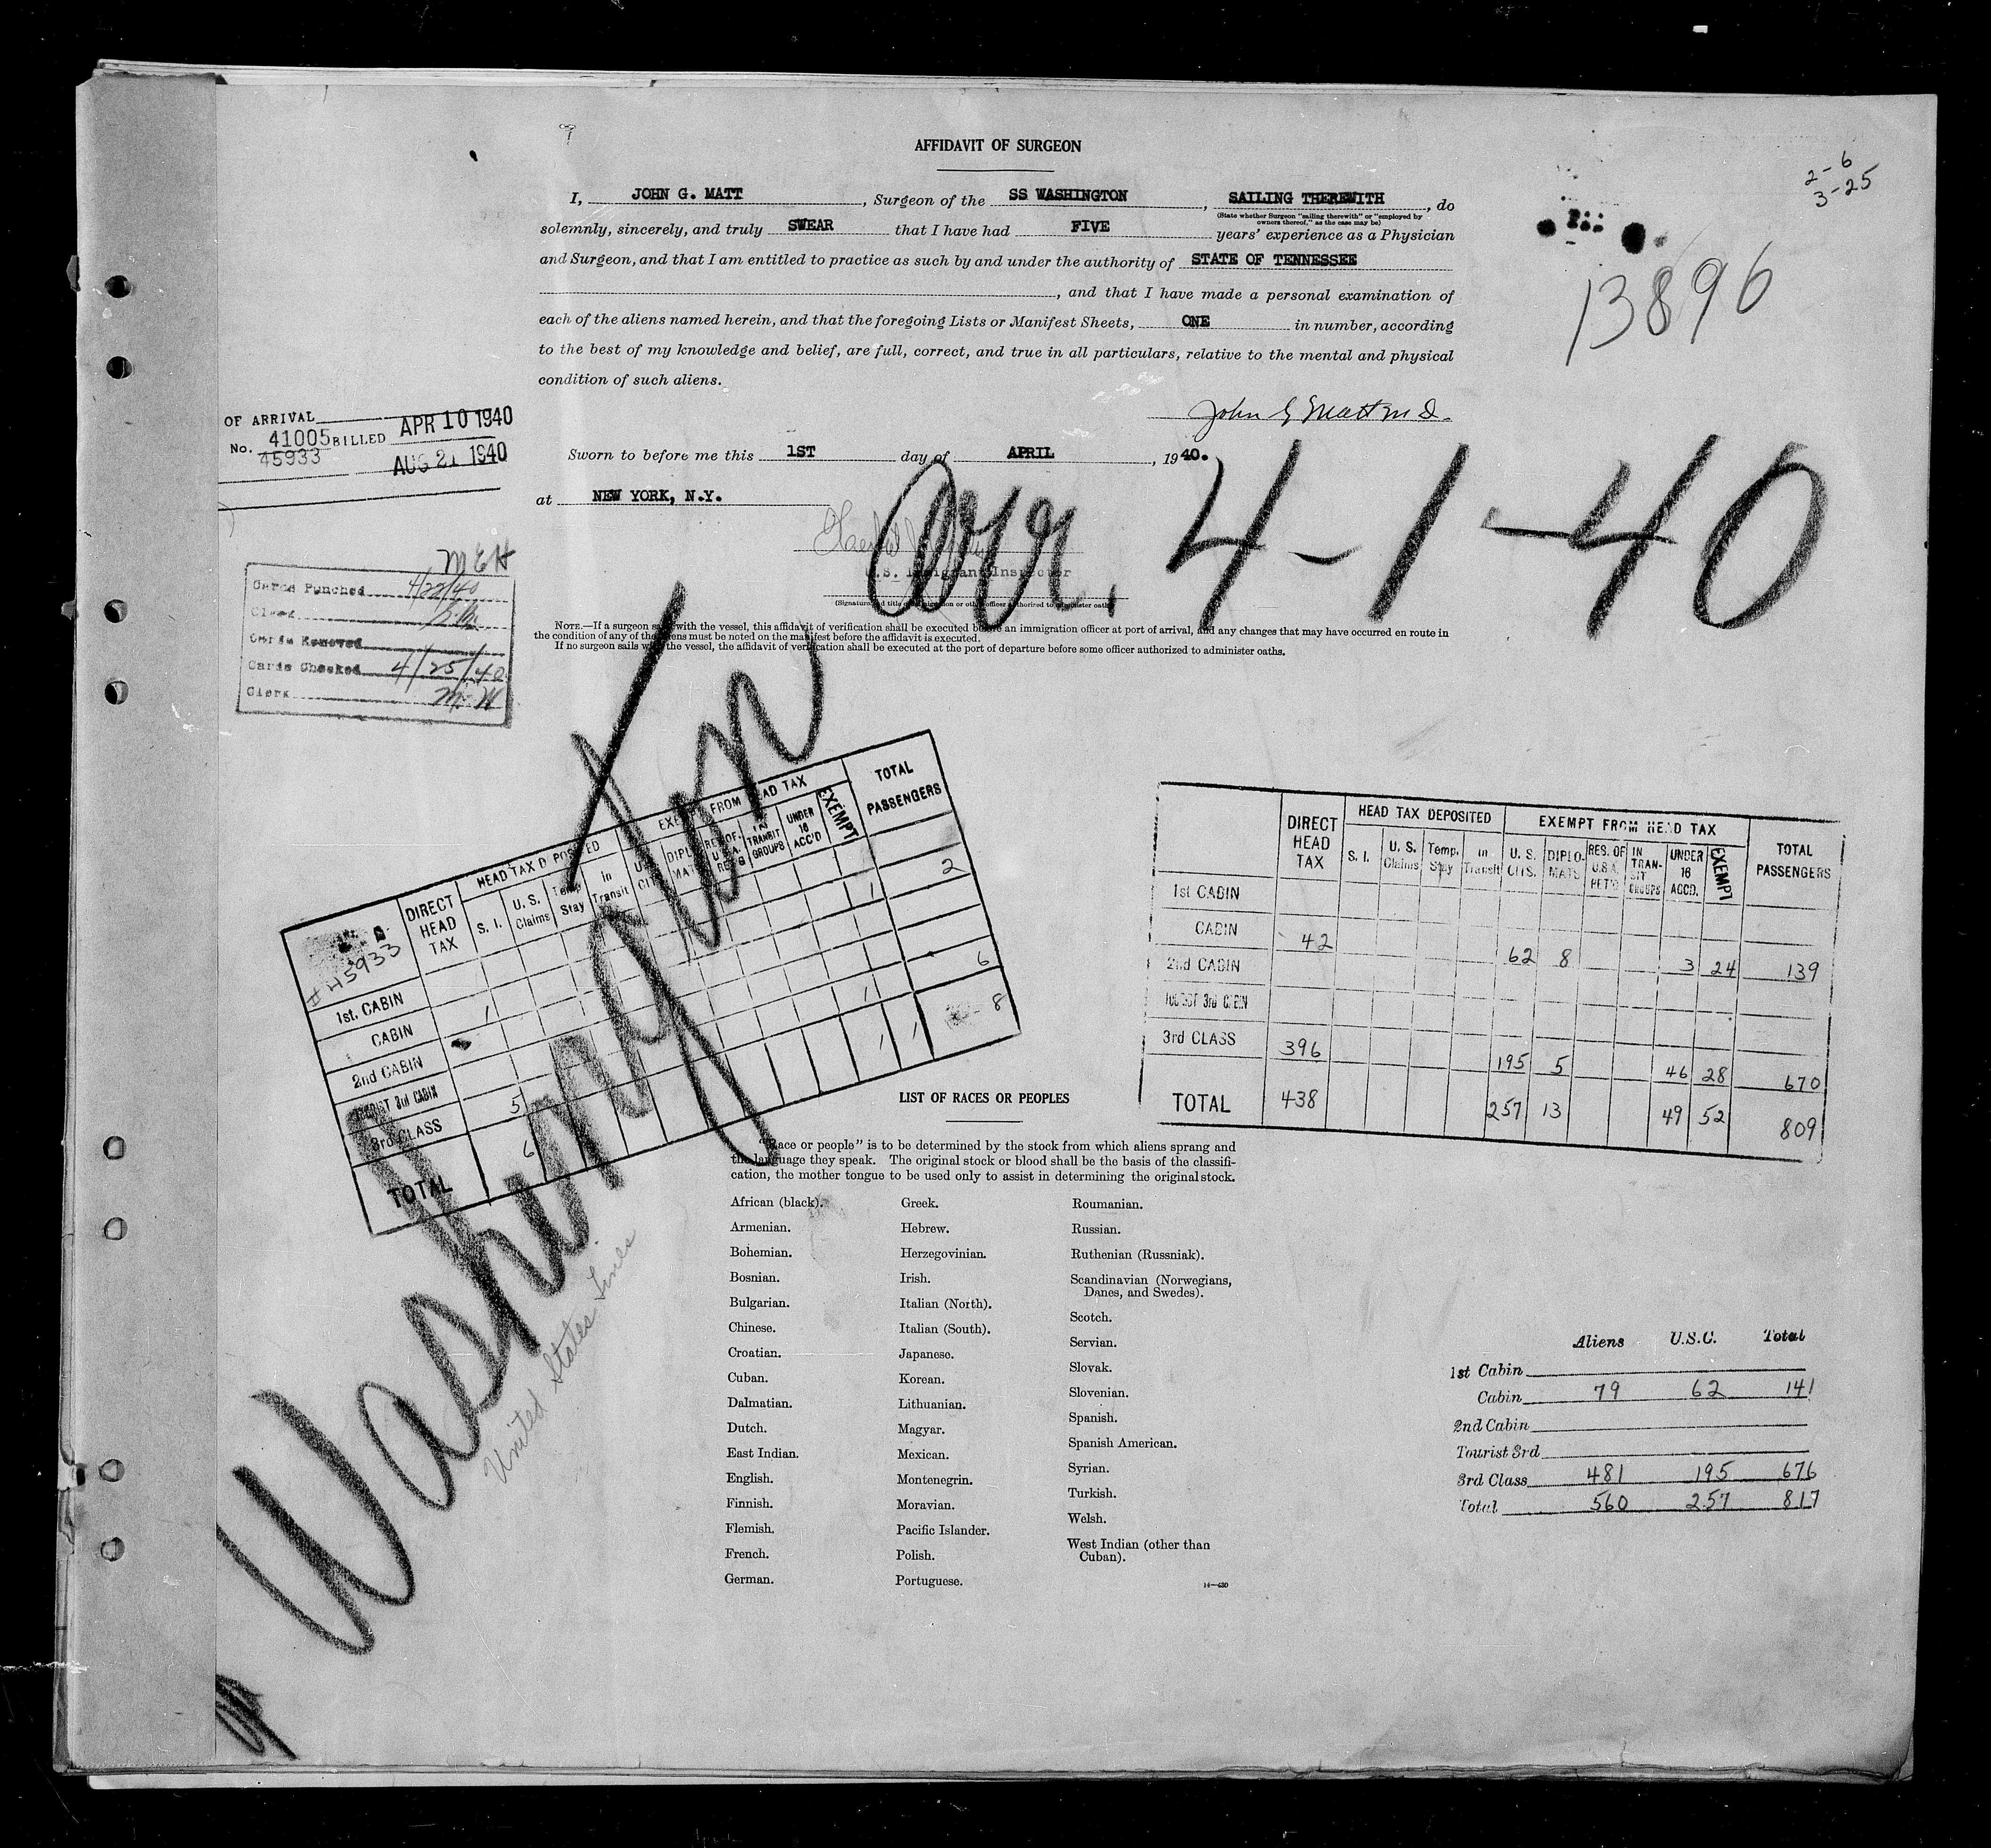 AFFIDAVIT OF SURGEON
I, JOHN G. MATT, Surgeon of the SS WASHINGTON, SAILING THEREWITH, do
(State whether Surgeon "sailing therewith" or "employed by
owners thereof," as the case may be)
solemnly, sincerely, and truly SWEAR that I have had FIVE years' experience as a Physician
and Surgeon, and that I am entitled to practice as such by and under the authority of STATE OF TENNESSEE
, and that I have made a personal examination of
each of the aliens named herein, and that the foregoing Lists or Manifest Sheets, ONE in number, according
to the best of my knowledge and belief, are full, correct, and true in all particulars, relative to the mental and physical
condition of such aliens.
John G Matt M D.
Sworn to before me this 1ST day of APRIL, 1940.
at NEW YORK, N.Y.
U.S. Immigrant Inspector
(Signature and title of immigration or other officer authorized to administer oaths)
NOTE.—If a surgeon sails with the vessel, this affidavit of verification shall be executed before an immigration officer at port of arrival, and any changes that may have occurred en route in
the condition of any of the aliens must be noted on the manifest before the affidavit is executed.
If no surgeon sails with the vessel, the affidavit of verification shall be executed at the port of departure before some officer authorized to administer oaths.
2-6
3-25
13896
Arr. 4-1-40
OF ARRIVAL
No. 41005 BILLED APR 10 1940
45933 AUG 21 1940
M E H
Cards Punched 4/22/40
Clerk
Cards Removed
Cards Checked 4/25/40
Clerk M.W
Washington
United States Lines
#45933
DIRECT HEAD TAX
HEAD TAX DEPOSITED
S. I. U. S. Claims Temp. Stay In Transit
EXEMPT FROM HEAD TAX
U. S. CITS. DIPLOMATS RES. OF U.S.A. RET'G IN TRANSIT GROUPS UNDER 16 ACC'D EXEMPT
TOTAL PASSENGERS
1st. CABIN
CABIN 1 1 2
2nd CABIN
TOURIST 3rd CABIN
3rd CLASS 5 1 6
TOTAL 6 1 1 8
DIRECT HEAD TAX
HEAD TAX DEPOSITED
S. I. U. S. Claims Temp. Stay In Transit
EXEMPT FROM HEAD TAX
U. S. CITS. DIPLO-MATS RES. OF U.S.A. RET'G IN TRAN-SIT GROUPS UNDER 16 ACCD. EXEMPT
TOTAL PASSENGERS
1st CABIN
CABIN 42 62 8 3 24 139
2nd CABIN
TOURIST 3rd CABIN
3rd CLASS 396 195 5 46 28 670
TOTAL 438 257 13 49 52 809
LIST OF RACES OR PEOPLES
"Race or people" is to be determined by the stock from which aliens sprang and
the language they speak. The original stock or blood shall be the basis of the classifi-
cation, the mother tongue to be used only to assist in determining the original stock.
African (black).
Armenian.
Bohemian.
Bosnian.
Bulgarian.
Chinese.
Croatian.
Cuban.
Dalmatian.
Dutch.
East Indian.
English.
Finnish.
Flemish.
French.
German.
Greek.
Hebrew.
Herzegovinian.
Irish.
Italian (North).
Italian (South).
Japanese.
Korean.
Lithuanian.
Magyar.
Mexican.
Montenegrin.
Moravian.
Pacific Islander.
Polish.
Portuguese.
Roumanian.
Russian.
Ruthenian (Russniak).
Scandinavian (Norwegians,
Danes, and Swedes).
Scotch.
Servian.
Slovak.
Slovenian.
Spanish.
Spanish American.
Syrian.
Turkish.
Welsh.
West Indian (other than
Cuban).
14—430
Aliens U.S.C. Total
1st Cabin
Cabin 79 62 141
2nd Cabin
Tourist 3rd
3rd Class 481 195 676
Total 560 257 817